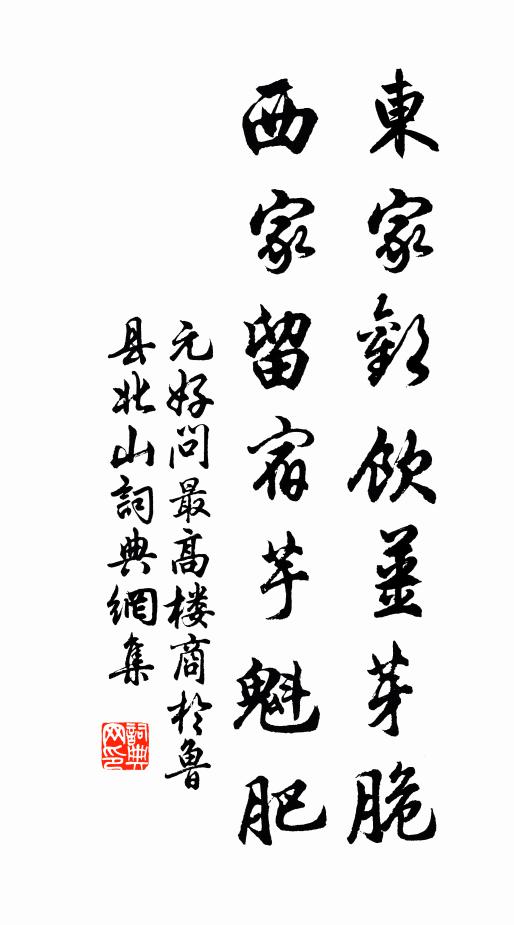 東家勸飲薑芽脆
西家留宿芋魁肥
元好问最高楼商於魯
县北山詞典網集
詞典网印